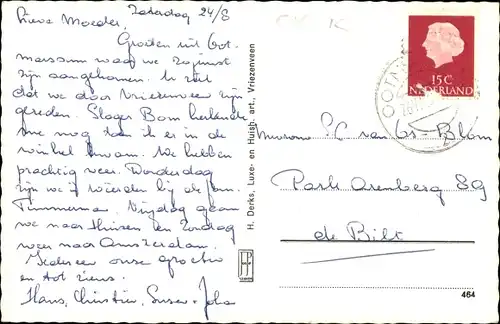 Zaterdag 24/8
Lieve Moeder,
Groeten uit Oot-
marssum waar we zojuist
zijn aangekomen. U ziet
dat we door Vriezenveen zijn
gereden. Slager Bom herkende
me nog toen ik er in de
winkel kwam. We hebben
prachtig weer. Donderdag
zijn we in Wierden bij de fam.
Timmerman. Vrijdag gaan
we naar Thuis en Zondag
weer naar Amsterdam.
Iedereen onze groeten
en tot ziens.
Hans, Christien, Suser + Joha
H. Derks, Luxe- en Huish. art., Vriezenveen
15 C
NEDERLAND
OOTM
Mevrouw C van Os-Blom
Park Arenberg 89
de Bilt
464